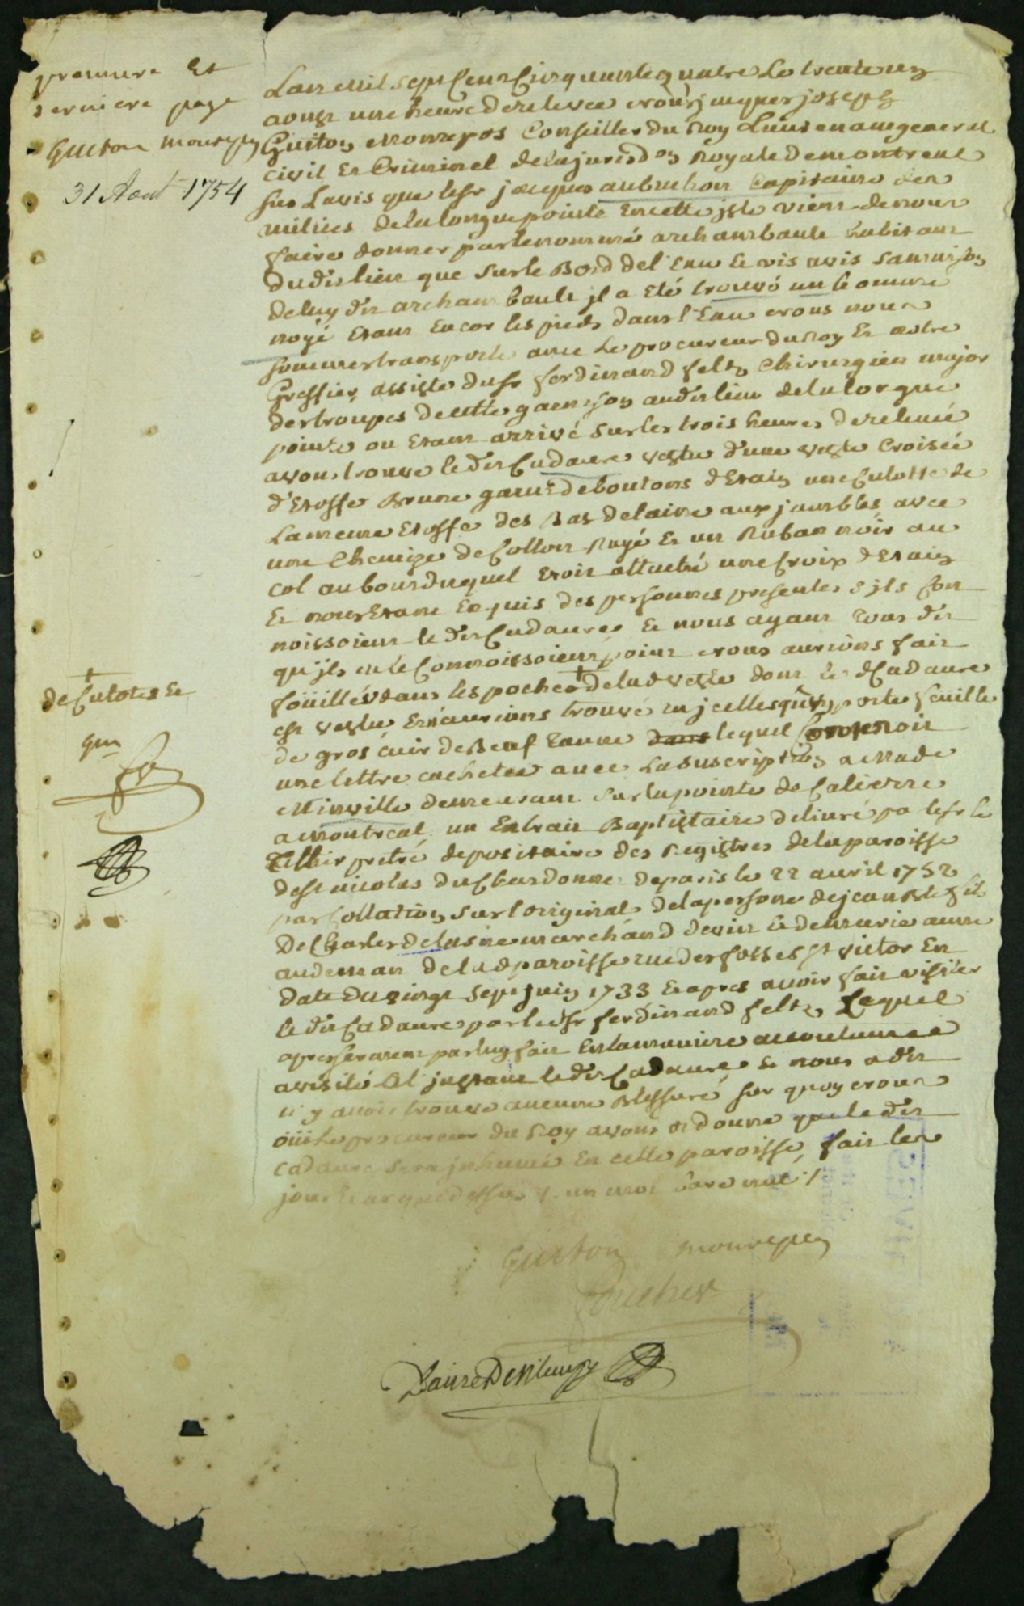 premiere Et
derniere page
Guiton Monrepos
31 Aout 1754
Lan mil sept Cent Cinquante quatre Le trente un
aoust une heure de relevée nous jacques joseph
Guiton Monrepos Conseiller du Roy Lieutenant general
civil Et Criminel de la jurisdon Royale de montreal
sur Lavis que le sr jacques aubuchon Capitaine des
milices de la longue pointe En cette isle vient de nous
faire donner par le nommé archambault habitant
dudit lieu que sur le Bord de l'Eau Et vis avis sa maison
de luy dit archambault il a Eté trouvé un homme
noyé Etant Encor les pieds dans l'Eau nous nous
sommes transporté avec Le procureur du Roy Et notre
Greffier assisté du sr ferdinand feltz Chirurgien major
des troupes de cette garnison audit lieu de la longue
pointe ou Etant arrivé sur les trois heures de relevée
avons trouvé le dit Cadavre vestu d'une veste Croisée
d'Etoffe Brune garnie de boutons d'Etain une Culotte de
La meme Etoffe des Bas de laine aux jambes avec
une Chemize de Cotton Rayé Et un Ruban noir au
col au bout duquel Etoit attaché une Croix d'Etain
Et nous Etant Enquis des personnes presentes s'ils Con
noissoient le dit Cadavre Et nous ayant tous dit
qu'ils ne le Connoissoient point nous aurions fait
foüiller dans les poches + de lad veste dont le d Cadavre
Est vestu Et n'aurions trouvé En jcelles qu'un porte feüille
de gros cuir de Beuf Tanné dans lequel Contenoit
une lettre cachetée avec La suscription a Made
Minville demeurant sur la pointe de Caliere
a Montreal un Extrait Baptistaire delivré pa le sr le
prétre depositaire des Registres de la paroisse
de st nicolas du Chardonne de paris le 22 avril 1752
par Collation sur l'original de la persone de jean Bte fils
De Charles marchand de vin Et de marie anne
audeman de lad paroisse rue des fosses st victor En
Date du vingt sept juin 1733 Et apres avoir fait visiter
le dit Cadavre par le dt sr ferdinand feltz, Lequel
apres serment par luy fait En la maniere accoutumée
a visité A l'jnstant le dit Cadavre Et nous a dit
n'y avoir trouvé aucune Blessure sur quoy nous
oüi Le procureur du Roy avons ordonné que le dit
cadavre sera jnhumé En cette paroisse, fait les
jour Et an que dessus
+
de Culottes Et
Gm
Guiton Monrepos
Foucher
Danré De Blanzy